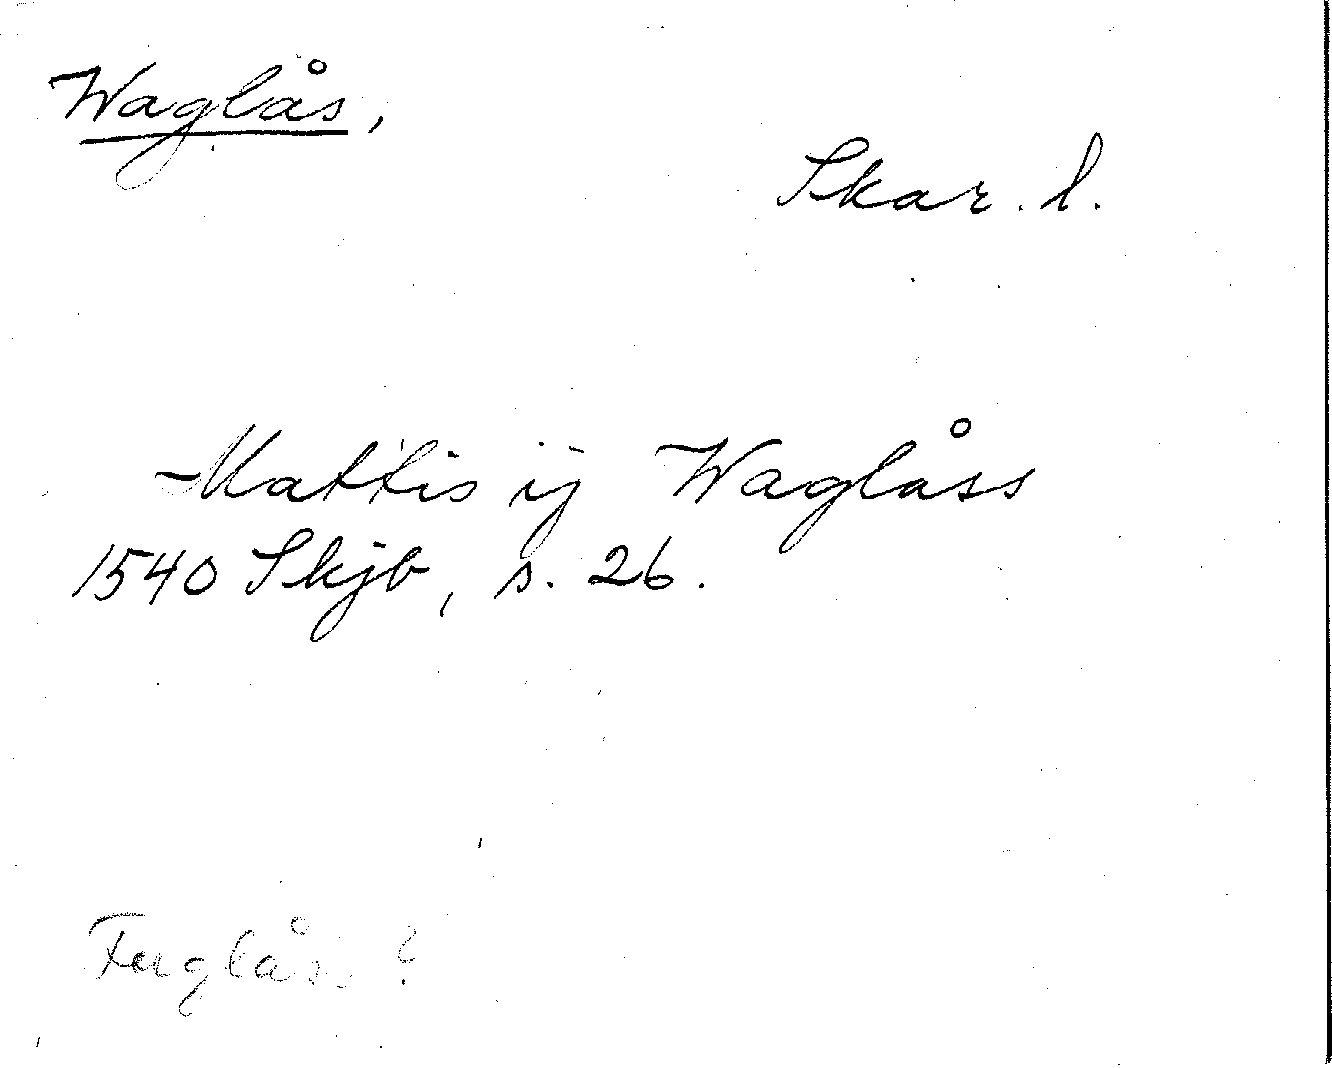 Waglås,
Skar. l.
Mattis ij Waglåss
1540 Skjb, s. 26.
Fuglås ?